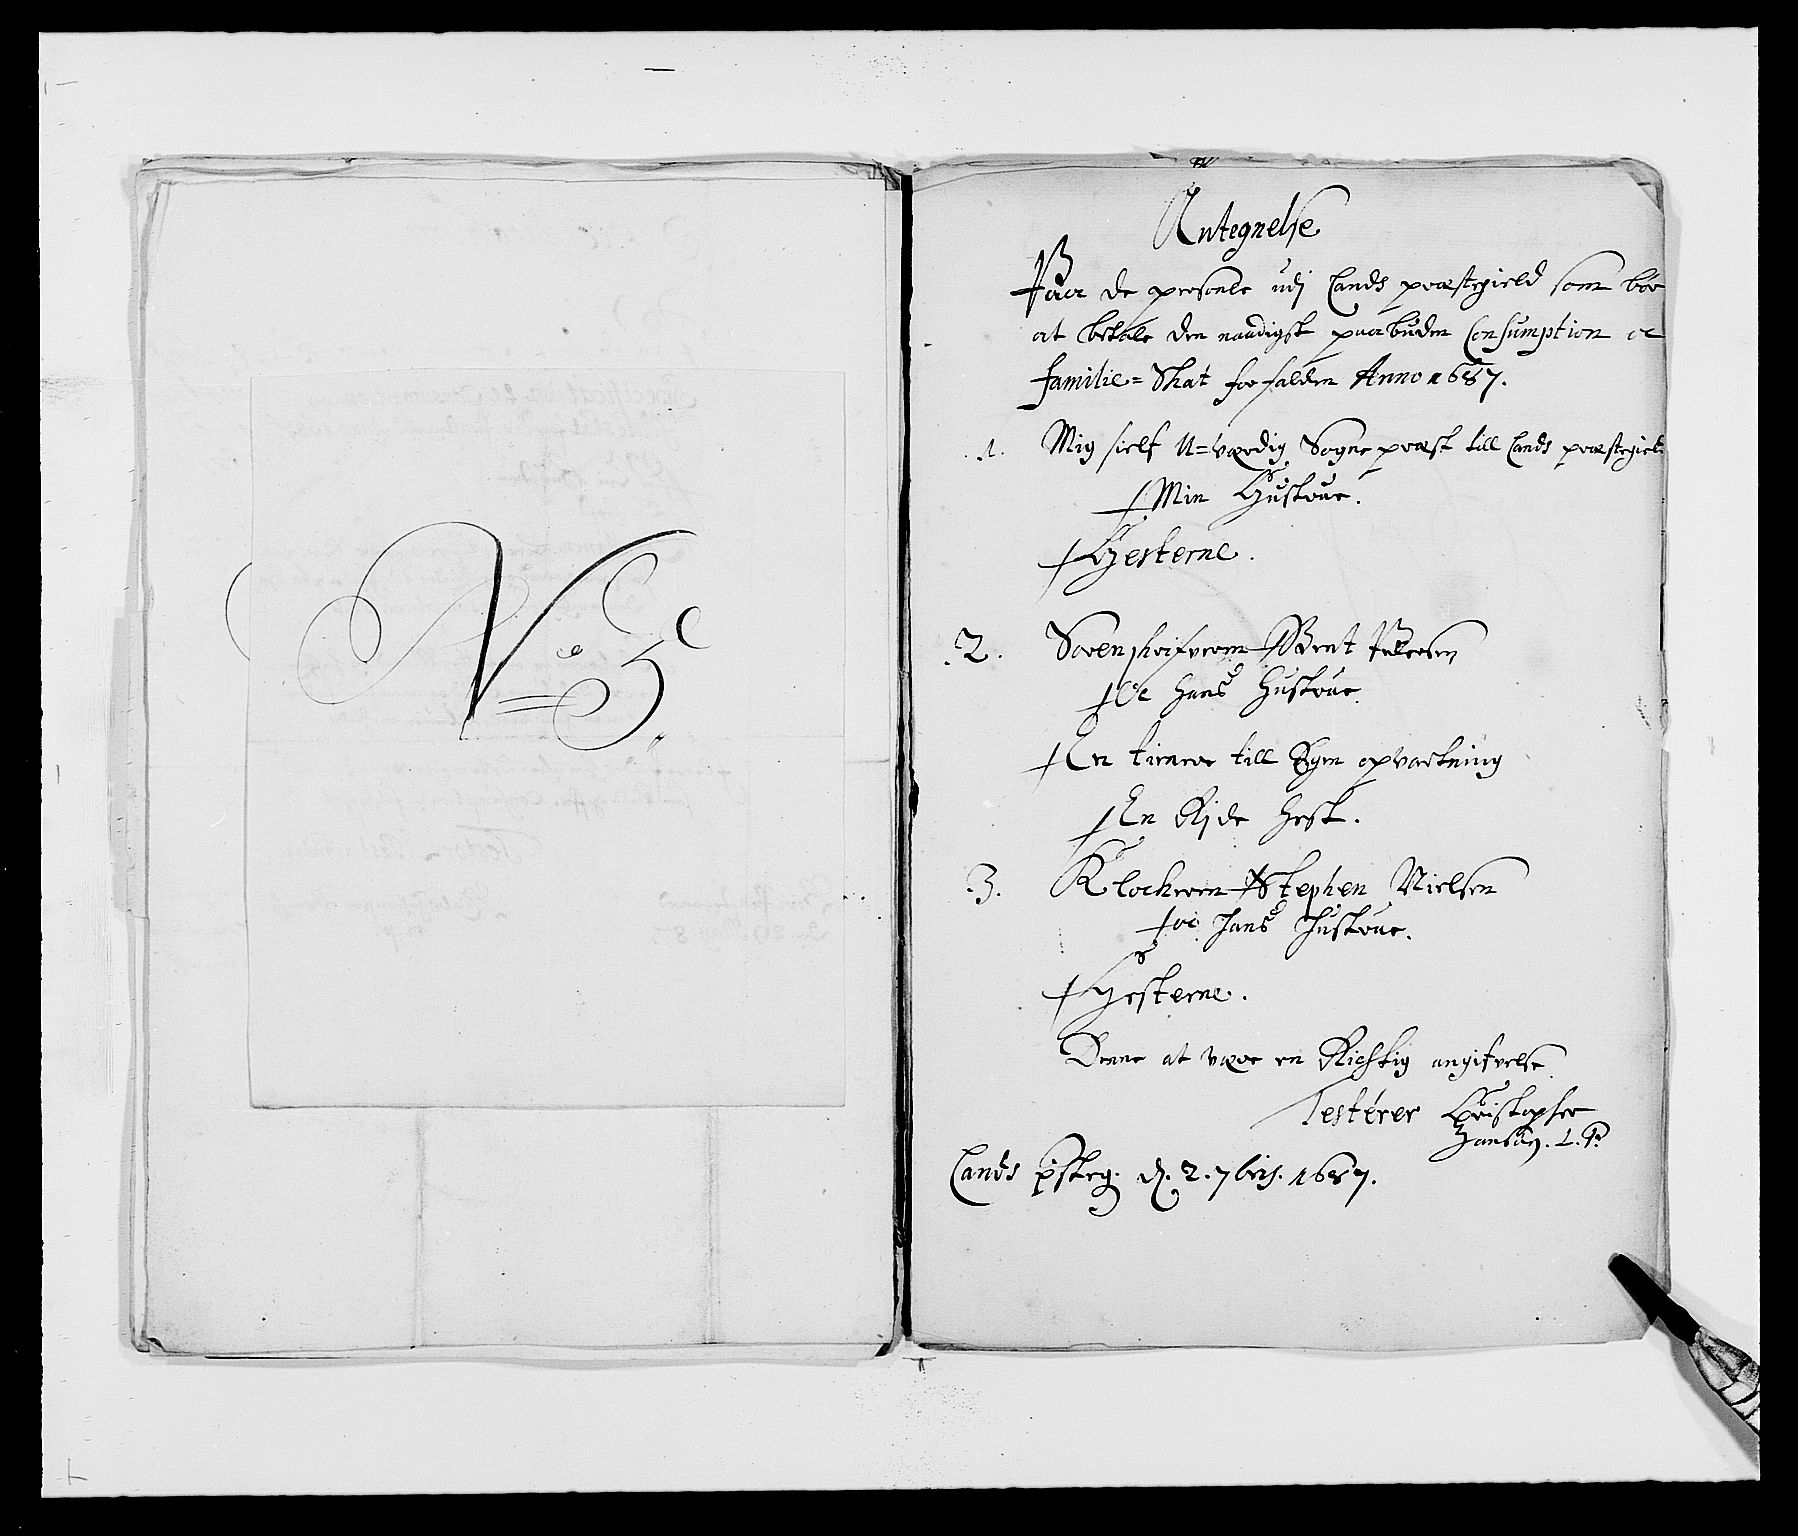 No 5
Antegnelse
Paa de personer udj Lands præstegield som bör
at betale den naadigst paabuden Consumption oc
familie= Skat forfalden Anno 1687.
1. Mig sielf U=værdig Sogne præst till Lands præstegield
Min Hustrue.
Hesterne.
2. Sorenskrifveren Bent Pedersen
Oc hans Hustrue
En tienere till Egen opvartning
En Ride hest.
3. Klockeren Stephen Nielsen
oc hans hustrue.
Hesterne.
Denne at være en Richtig angifvelse
Testerer Christopher
Hansøn.
Lands psteg. d. 2. 7bris. 1687.